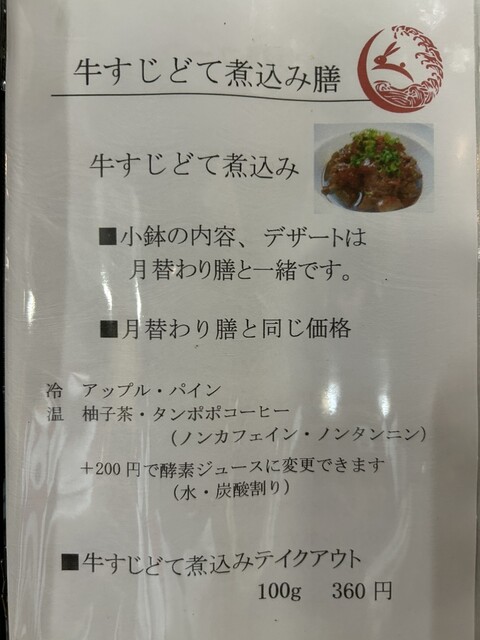 牛すじどて煮込み膳
牛すじどて煮込み
■小鉢の内容、デザートは
月替わり膳と一緒です。
■月替わり膳と同じ価格
冷 アップル・パイン
温 柚子茶・タンポポコーヒー
(ノンカフェイン・ノンタンニン)
+200円で酵素ジュースに変更できます
(水・炭酸割り)
■牛すじどて煮込みテイクアウト
100g 360円